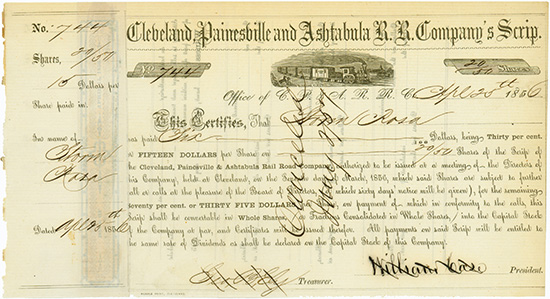 No. 744
Shares, 20/50
15 Dollars per
Share paid in.
In name of
Storm
Rosa
Dated Apl 25th 1856
Cleveland, Painesville and Ashtabula R. R. Company's Scrip.
No. 744
20/50 Shares
Office of C. P. & A. R. R. Co. Apl 25th 1856
This Certifies, That Storm Rosa
has paid Six Dollars, being Thirty per cent.
or FIFTEEN DOLLARS per Share on 20/50 Shares of the Scrip of
the Cleveland, Painesville & Ashtabula Rail Road Company, authorized to be issued at a meeting of the Directors of
this Company, held at Cleveland, on the day of March, 1856, which said Shares are subject to further
call or calls at the pleasure of the Board of Directors (of which sixty days notice will be given), for the remaining
seventy per cent. or THIRTY FIVE DOLLARS, on payment of which in conformity to the calls, this
Scrip shall be convertable in Whole Shares, (or Fractions Consolidated in Whole Shares,) into the Capital Stock
of the Company at par, and Certificates will be issued therefor. All payments on said Scrip will be entitled to
the same rate of Dividends as shall be declared on the Capital Stock of this Company.
Treasurer.
William Case President.
Cancelled